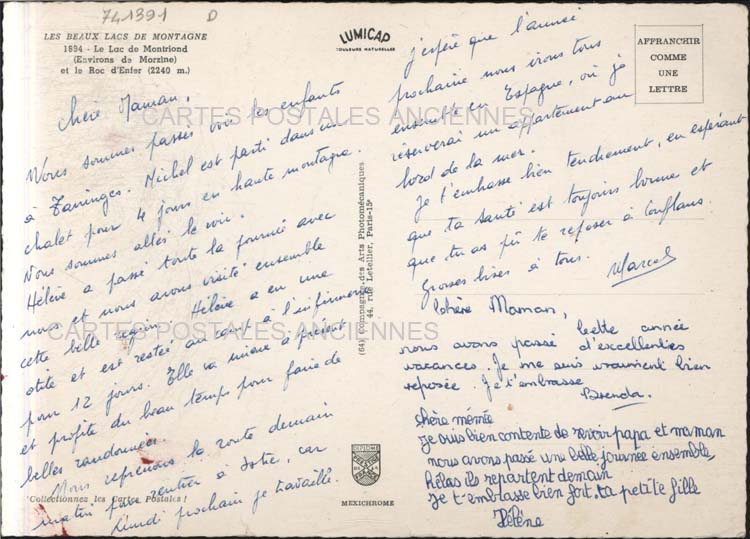 741391 D
LES BEAUX LACS DE MONTAGNE
1894 - Le Lac de Montriond
(Environs de Morzine)
et le Roc d'Enfer (2240 m.)
LUMICAP
COULEURS NATURELLES
AFFRANCHIR
COMME
UNE
LETTRE
CARTES POSTALES ANCIENNES
Chère Maman,
Nous sommes passés voir les enfants
à Taninges. Michel est parti dans un
chalet pour 4 jours en haute montagne.
Nous sommes allés le voir.
Hélène a passé toute la journée avec
nous et nous avons visité ensemble
cette belle région. Hélène a eu une
otite et est restée au lit à l'infirmerie
pour 12 jours. Elle va mieux à présent
et profite du beau temps pour faire de
belles randonnées.
Nous reprenons la route demain
matin pour rentrer à car
Lundi prochain je travaille.
CARTES POSTALES ANCIENNES
"Collectionnez les Cartes Postales !
(64) Compagnie des Arts Photomécaniques
44, rue Letellier, Paris-15e
MEXICHROME
j'espère que l'année
prochaine nous irons tous
ensemble en Espagne, où je
réserverai un appartement au
bord de la mer.
Je t'embrasse bien tendrement, en espérant
que ta santé est toujours bonne et
que tu as pû te reposer à Conflans.
Grosses bises à tous.
Marcel
Chère Maman,
Cette année
nous avons passé d'excellentes
vacances. Je me suis vraiment bien
reposée. Je t'embrasse
Brenda.
chère mémée
Je suis bien contente de revoir papa et maman
nous avons passé une belle journée ensemble,
hélas ils repartent demain
Je t'emblasse bien fort, ta petite fille
Hélène